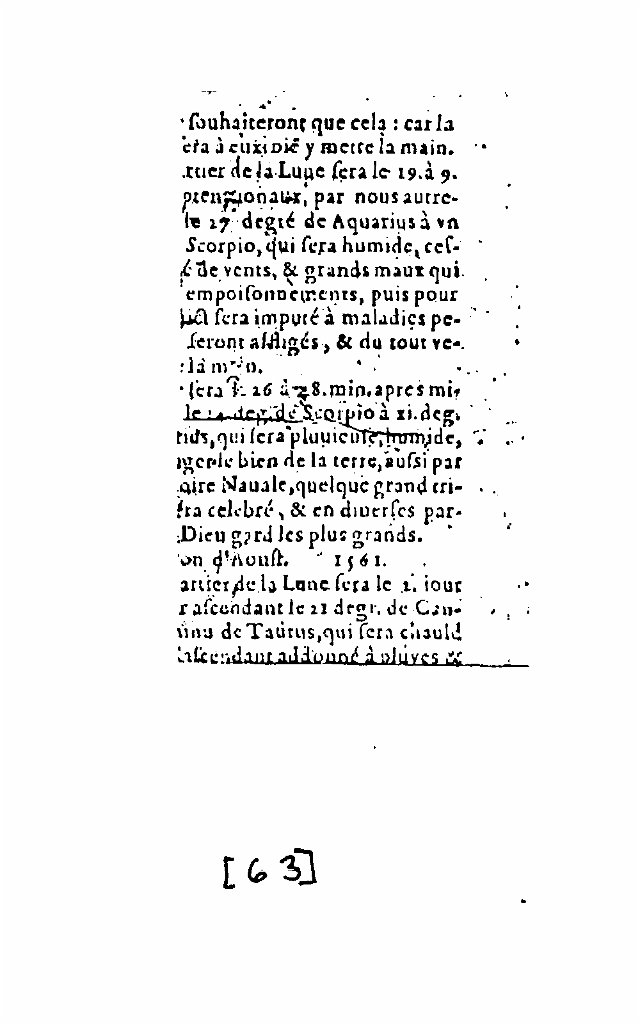 souhaiteront que cela : car la
era à euxiDie y mettre la main.
rtier de la Lune sera le 19. à 9.
ptentrionaux, par nous autre-
le 27 degté de Aquarius à vn
Scorpio, qui sera humide, ces-
é de vents, & grands maux qui
empoisonnements, puis pour
sera imputé à maladies pe-
seront affligés, & du tout ve-
la main.
sera 26 à 28. min. apres mi-
le deg. de Scorpio à xi. deg.
qui sera pluuieuse, humide,
nger le bien de la terre, aussi par
oire Nauale, quelque grand tri-
fra celebré, & en diuerses par-
Dieu gard les plus grands.
on d'Aoust. 1561.
artier de la Lune sera le 2. iour
r ascendant le 21 degr. de Can-
de Taurus, qui sera chauld
ascendant addonné à pluyes &
[63]